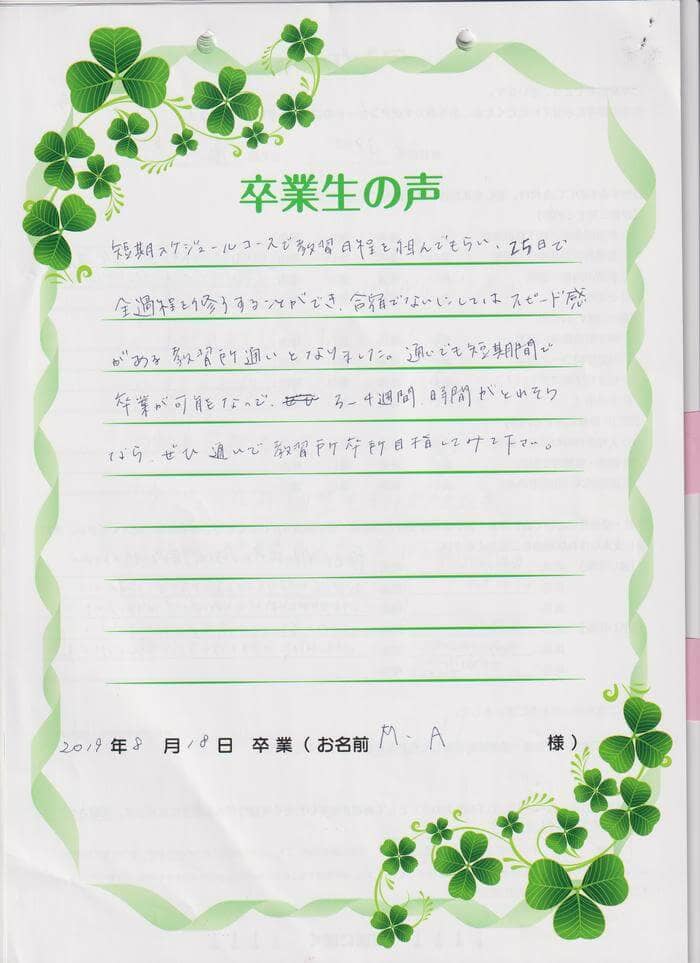 卒業生の声
短期スケジュールコースで教習日程を組んでもらい、25日で
全過程を修了することができ、合宿でないにしてはスピード感
がある教習所通いとなりました。通いでも短期間で
卒業が可能なので、3〜4週間、時間がとれそう
なら、ぜひ通いで教習所卒所目指してみて下さい。
2019年8月18日 卒業(お名前 M.A 様)